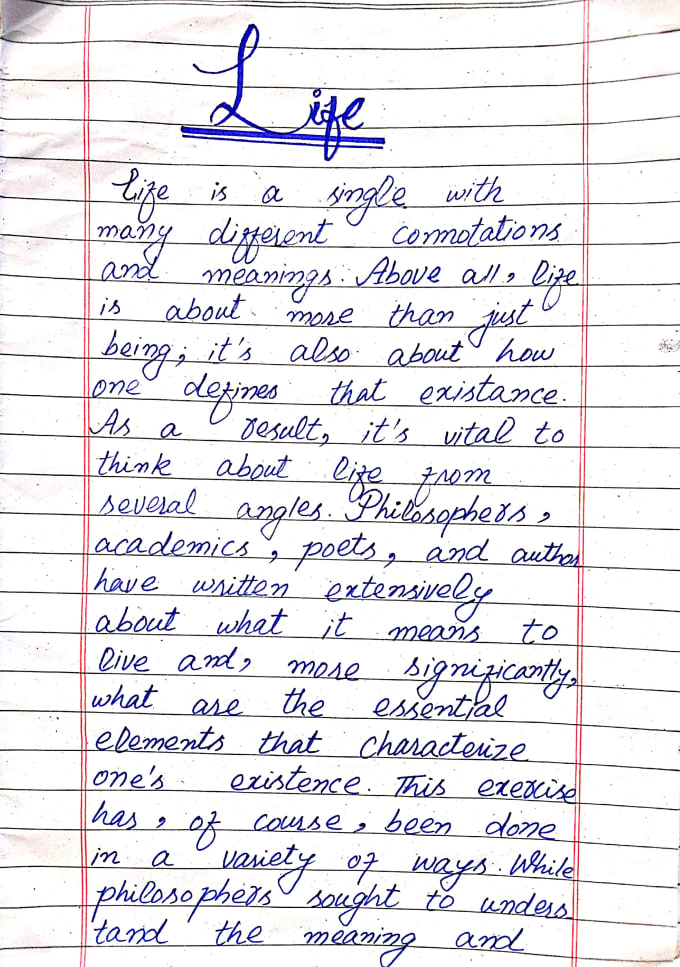 Life
Life is a single with
many different connotations
and meanings. Above all, life
is about more than just
being; it's also about how
one defines that existance.
As a result, it's vital to
think about life from
several angles. Philosophers,
academics, poets, and author
have written extensively
about what it means to
live and, more significantly,
what are the essential
elements that characterize
one's existence. This exercise
has, of course, been done
in a variety of ways. While
philosophers sought to unders
tand the meaning and